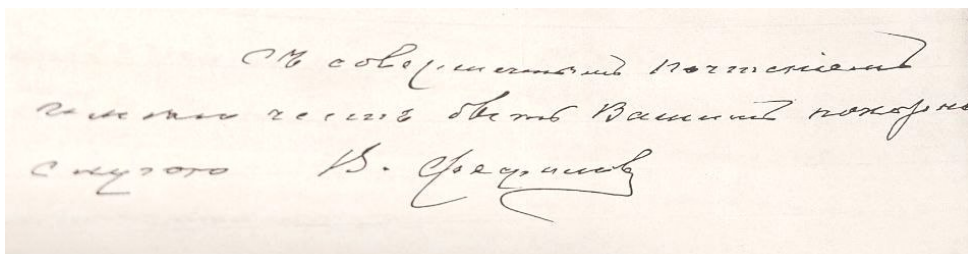 Съ совершеннымъ почтеніемъ
имѣю честь быть Вашимъ покорно
слугою В.